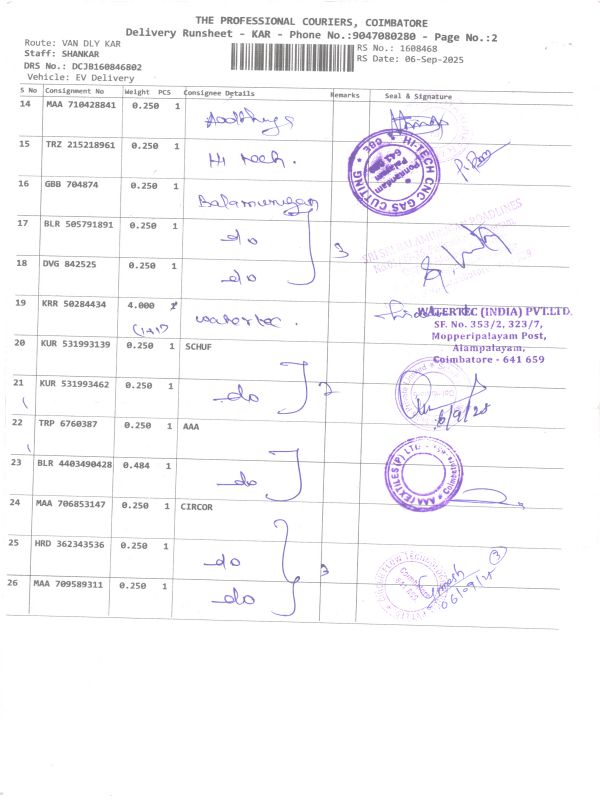 THE PROFESSIONAL COURIERS, COIMBATORE
Delivery Runsheet - KAR - Phone No.:9047080280 - Page No.:2
Route: VAN DLY KAR
Staff: SHANKAR
DRS No.: DCJB160846802
Vehicle: EV Delivery
RS No.: 1608468
RS Date: 06-Sep-2025
S No Consignment No Weight PCS Consignee Details Remarks Seal & Signature
14 MAA 710428841 0.250 1
15 TRZ 215218961 0.250 1 Hi tech.
HI-TECH CNC GAS CUTTING
16 GBB 704874 0.250 1 Balamurugan
17 BLR 505791891 0.250 1 do 3
18 DVG 842525 0.250 1 do
19 KRR 50284434 4.000 watertec.
(1+1)
WATERTEC (INDIA) PVT.LTD.
SF. No. 353/2, 323/7,
Mopperipalayam Post,
Alampalayam,
Coimbatore - 641 659
20 KUR 531993139 0.250 1 SCHUF
21 KUR 531993462 0.250 1 do 2
6/9/25
22 TRP 6760387 0.250 1 AAA
23 BLR 4403490428 0.484 1 do
AAA TEXTILES (P) LTD
Coimbatore
24 MAA 706853147 0.250 1 CIRCOR
25 HRD 362343536 0.250 1 do 3
26 MAA 709589311 0.250 1 do
3
06/09/25